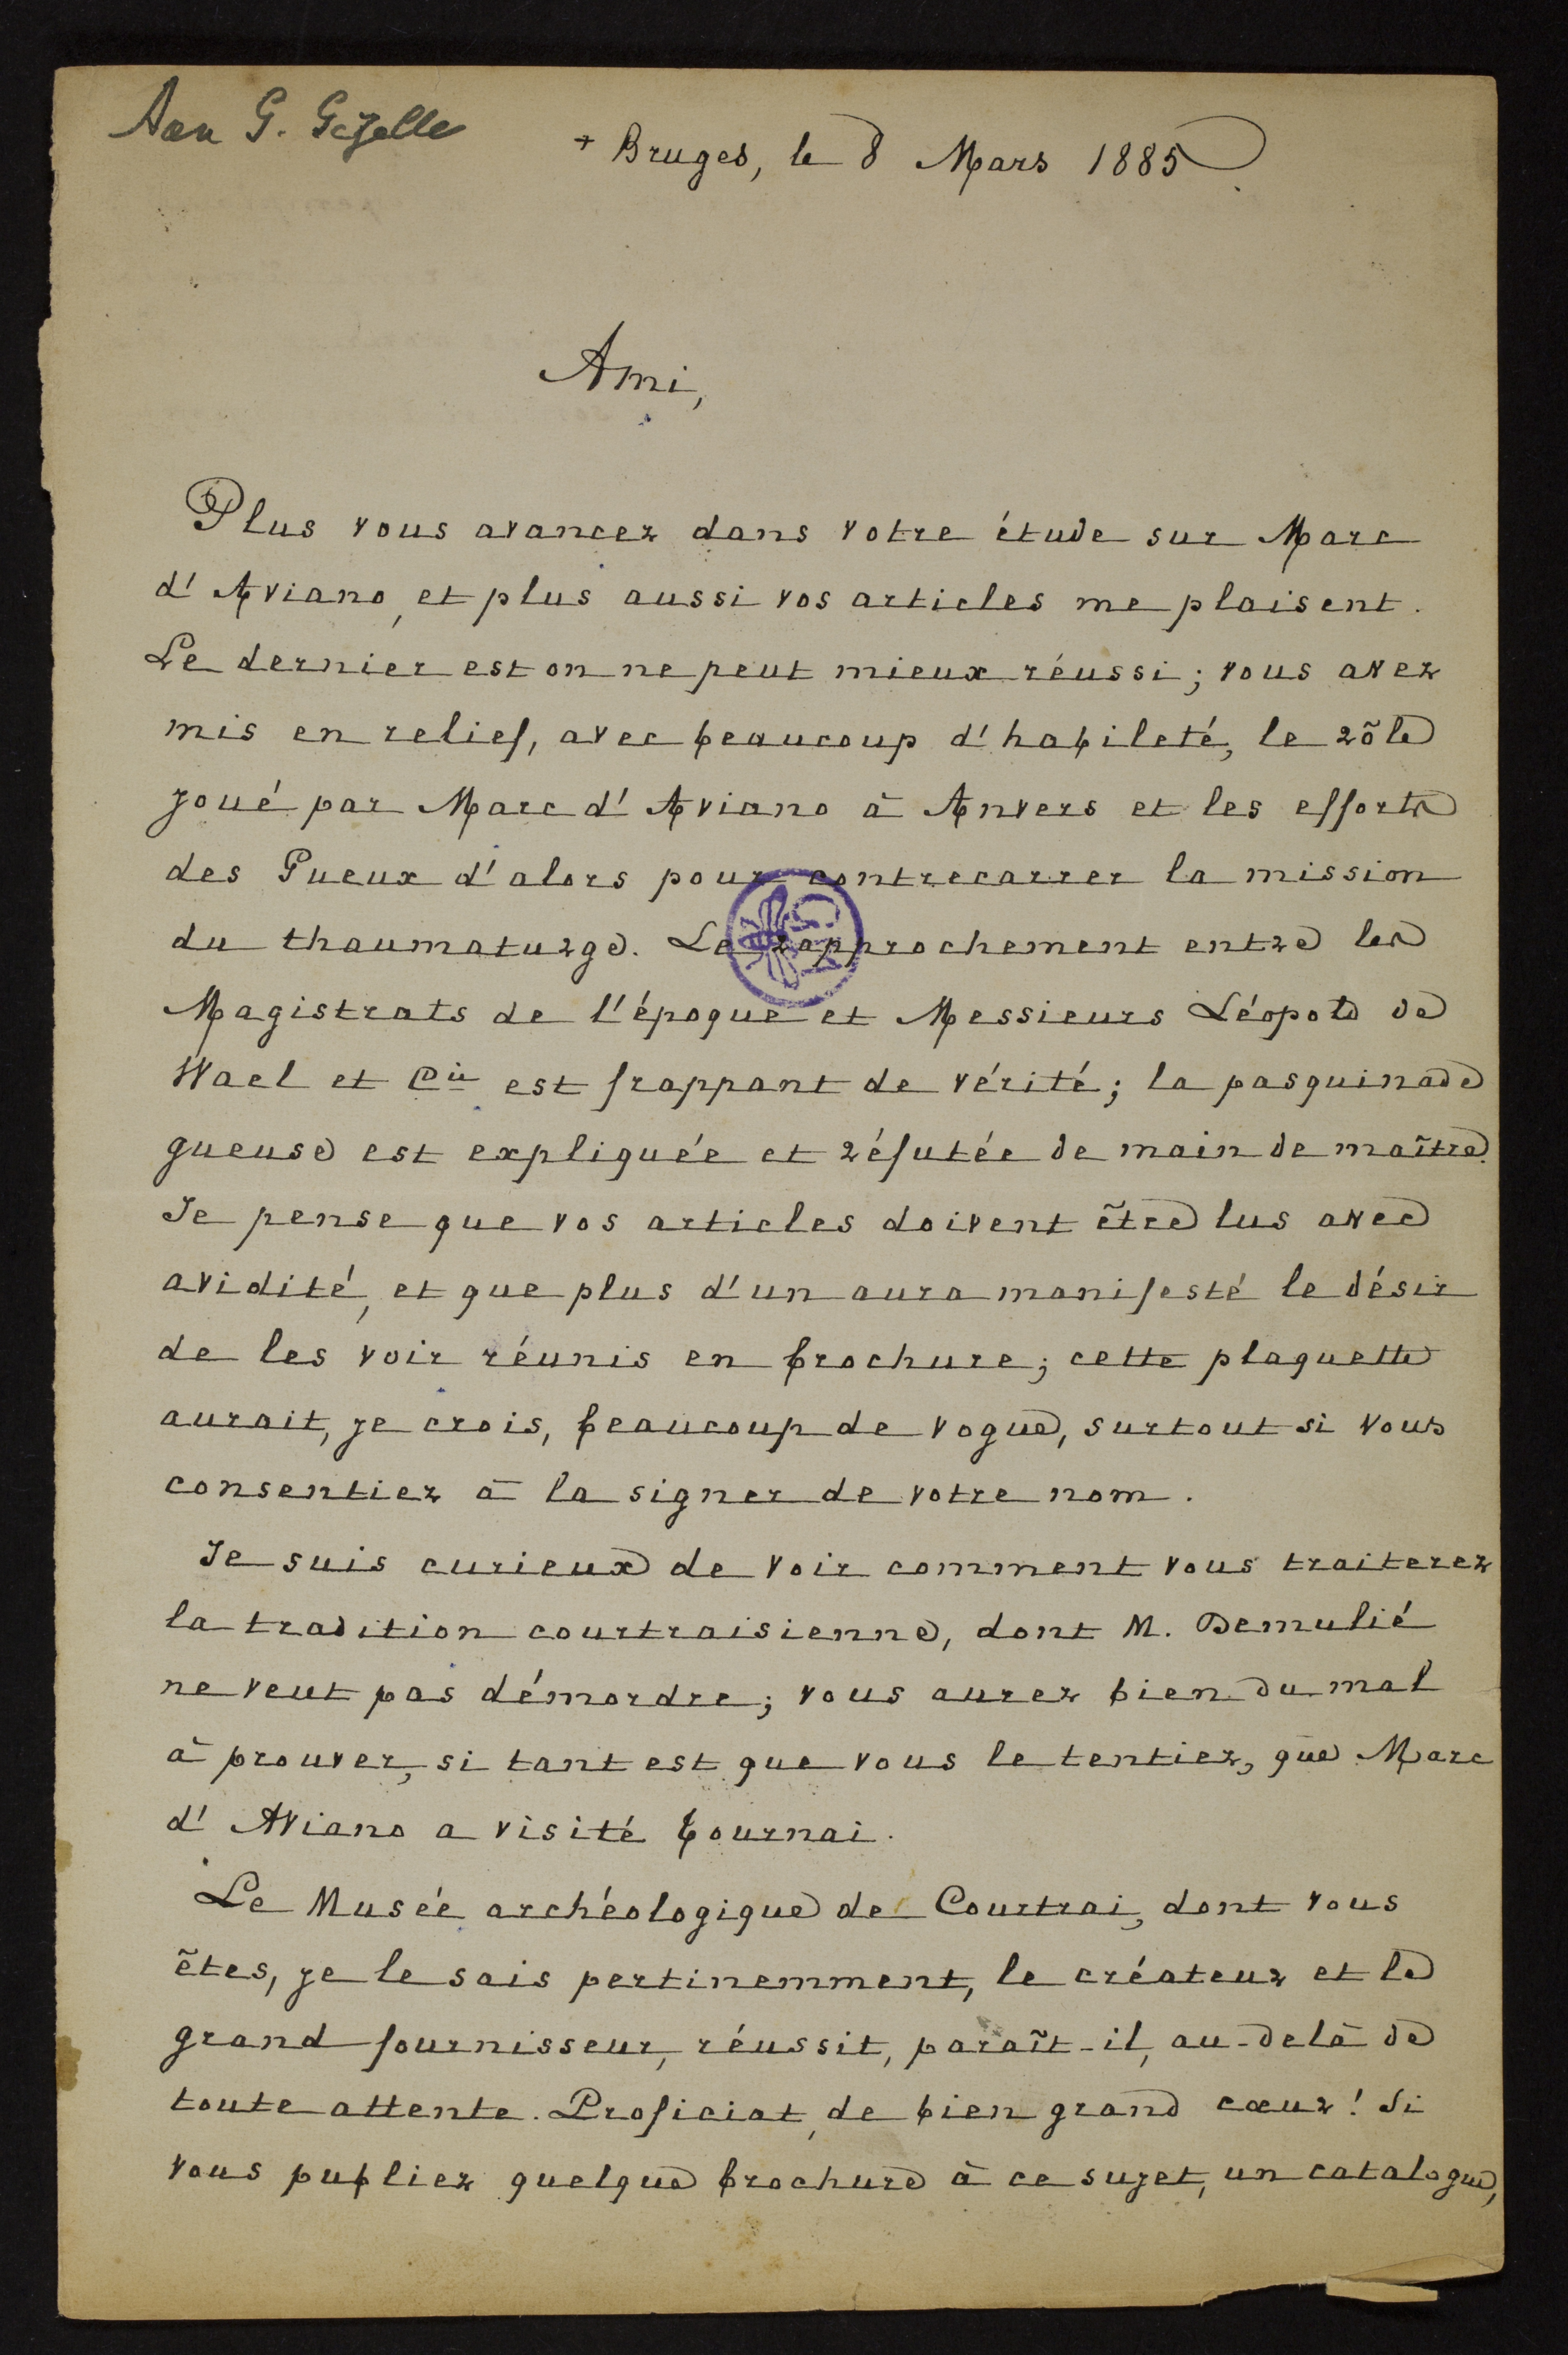 Aan G. Gezelle
+ Bruges, le 8 Mars 1885.
Ami,
Plus vous avancez dans votre étude sur Marc
d'Aviano, et plus aussi vos articles me plaisent.
Le dernier est on ne peut mieux réussi; vous avez
mis en relief, avec beaucoup d'habileté, le rôle
joué par Marc d'Aviano à Anvers et les efforts
des Gueux d'alors pour contrecarrer la mission
du thaumaturge. Le rapprochement entre les
Magistrats de l'époque et Messieurs Léopold de
Wael et Cie est frappant de vérité; la pasquinade
gueuse est expliquée et réfutée de main de maître.
Je pense que vos articles doivent être lus avec
avidité, et que plus d'un aura manifesté le désir
de les voir réunis en brochure; cette plaquette
aurait, je crois, beaucoup de vogue, surtout si vous
consentiez à la signer de votre nom.
Je suis curieux de voir comment vous traiterez
la tradition courtraisienne, dont M. Demulié
ne veut pas démordre; vous aurez bien du mal
à prouver, si tant est que vous le tentiez, que Marc
d'Aviano a visité Tournai.
Le Musée archéologique de Courtrai, dont vous
êtes, je le sais pertinemment, le créateur et le
grand fournisseur, réussit, paraît-il, au-delà de
toute attente. Proficiat, de bien grand cœur! Si
vous publiez quelque brochure à ce sujet, un catalogue,